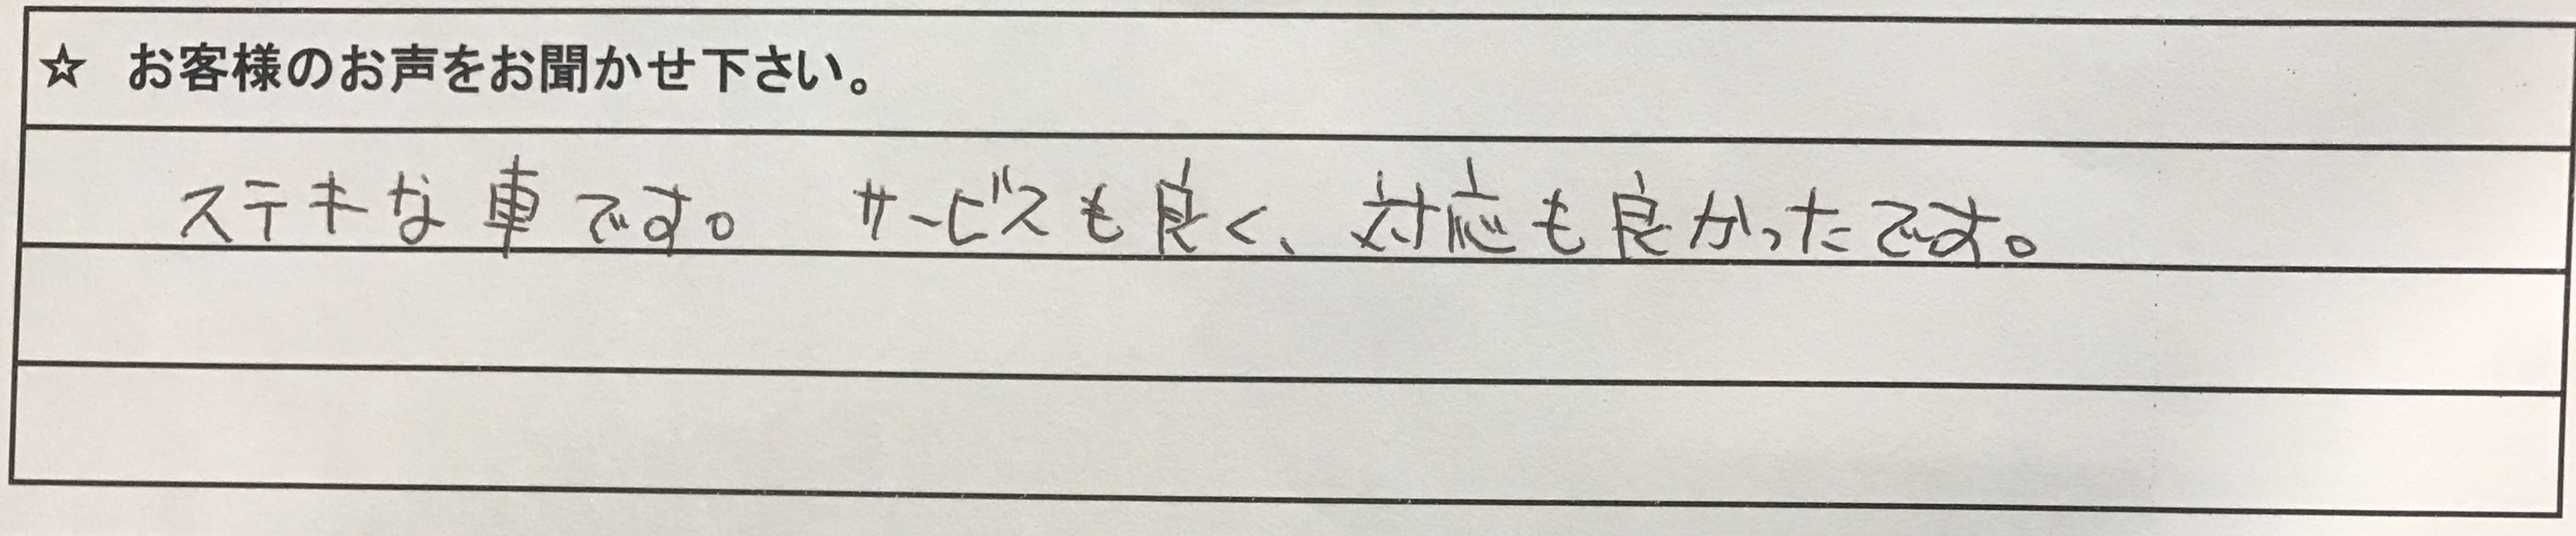 ☆ お客様のお声をお聞かせ下さい。
ステキな車です。 サービスも良く、対応も良かったです。